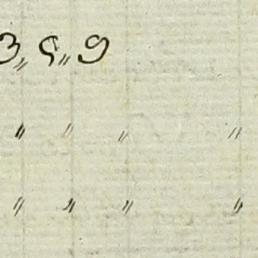 3„ 5„ 9
„ „ „ „
„ „ „ „